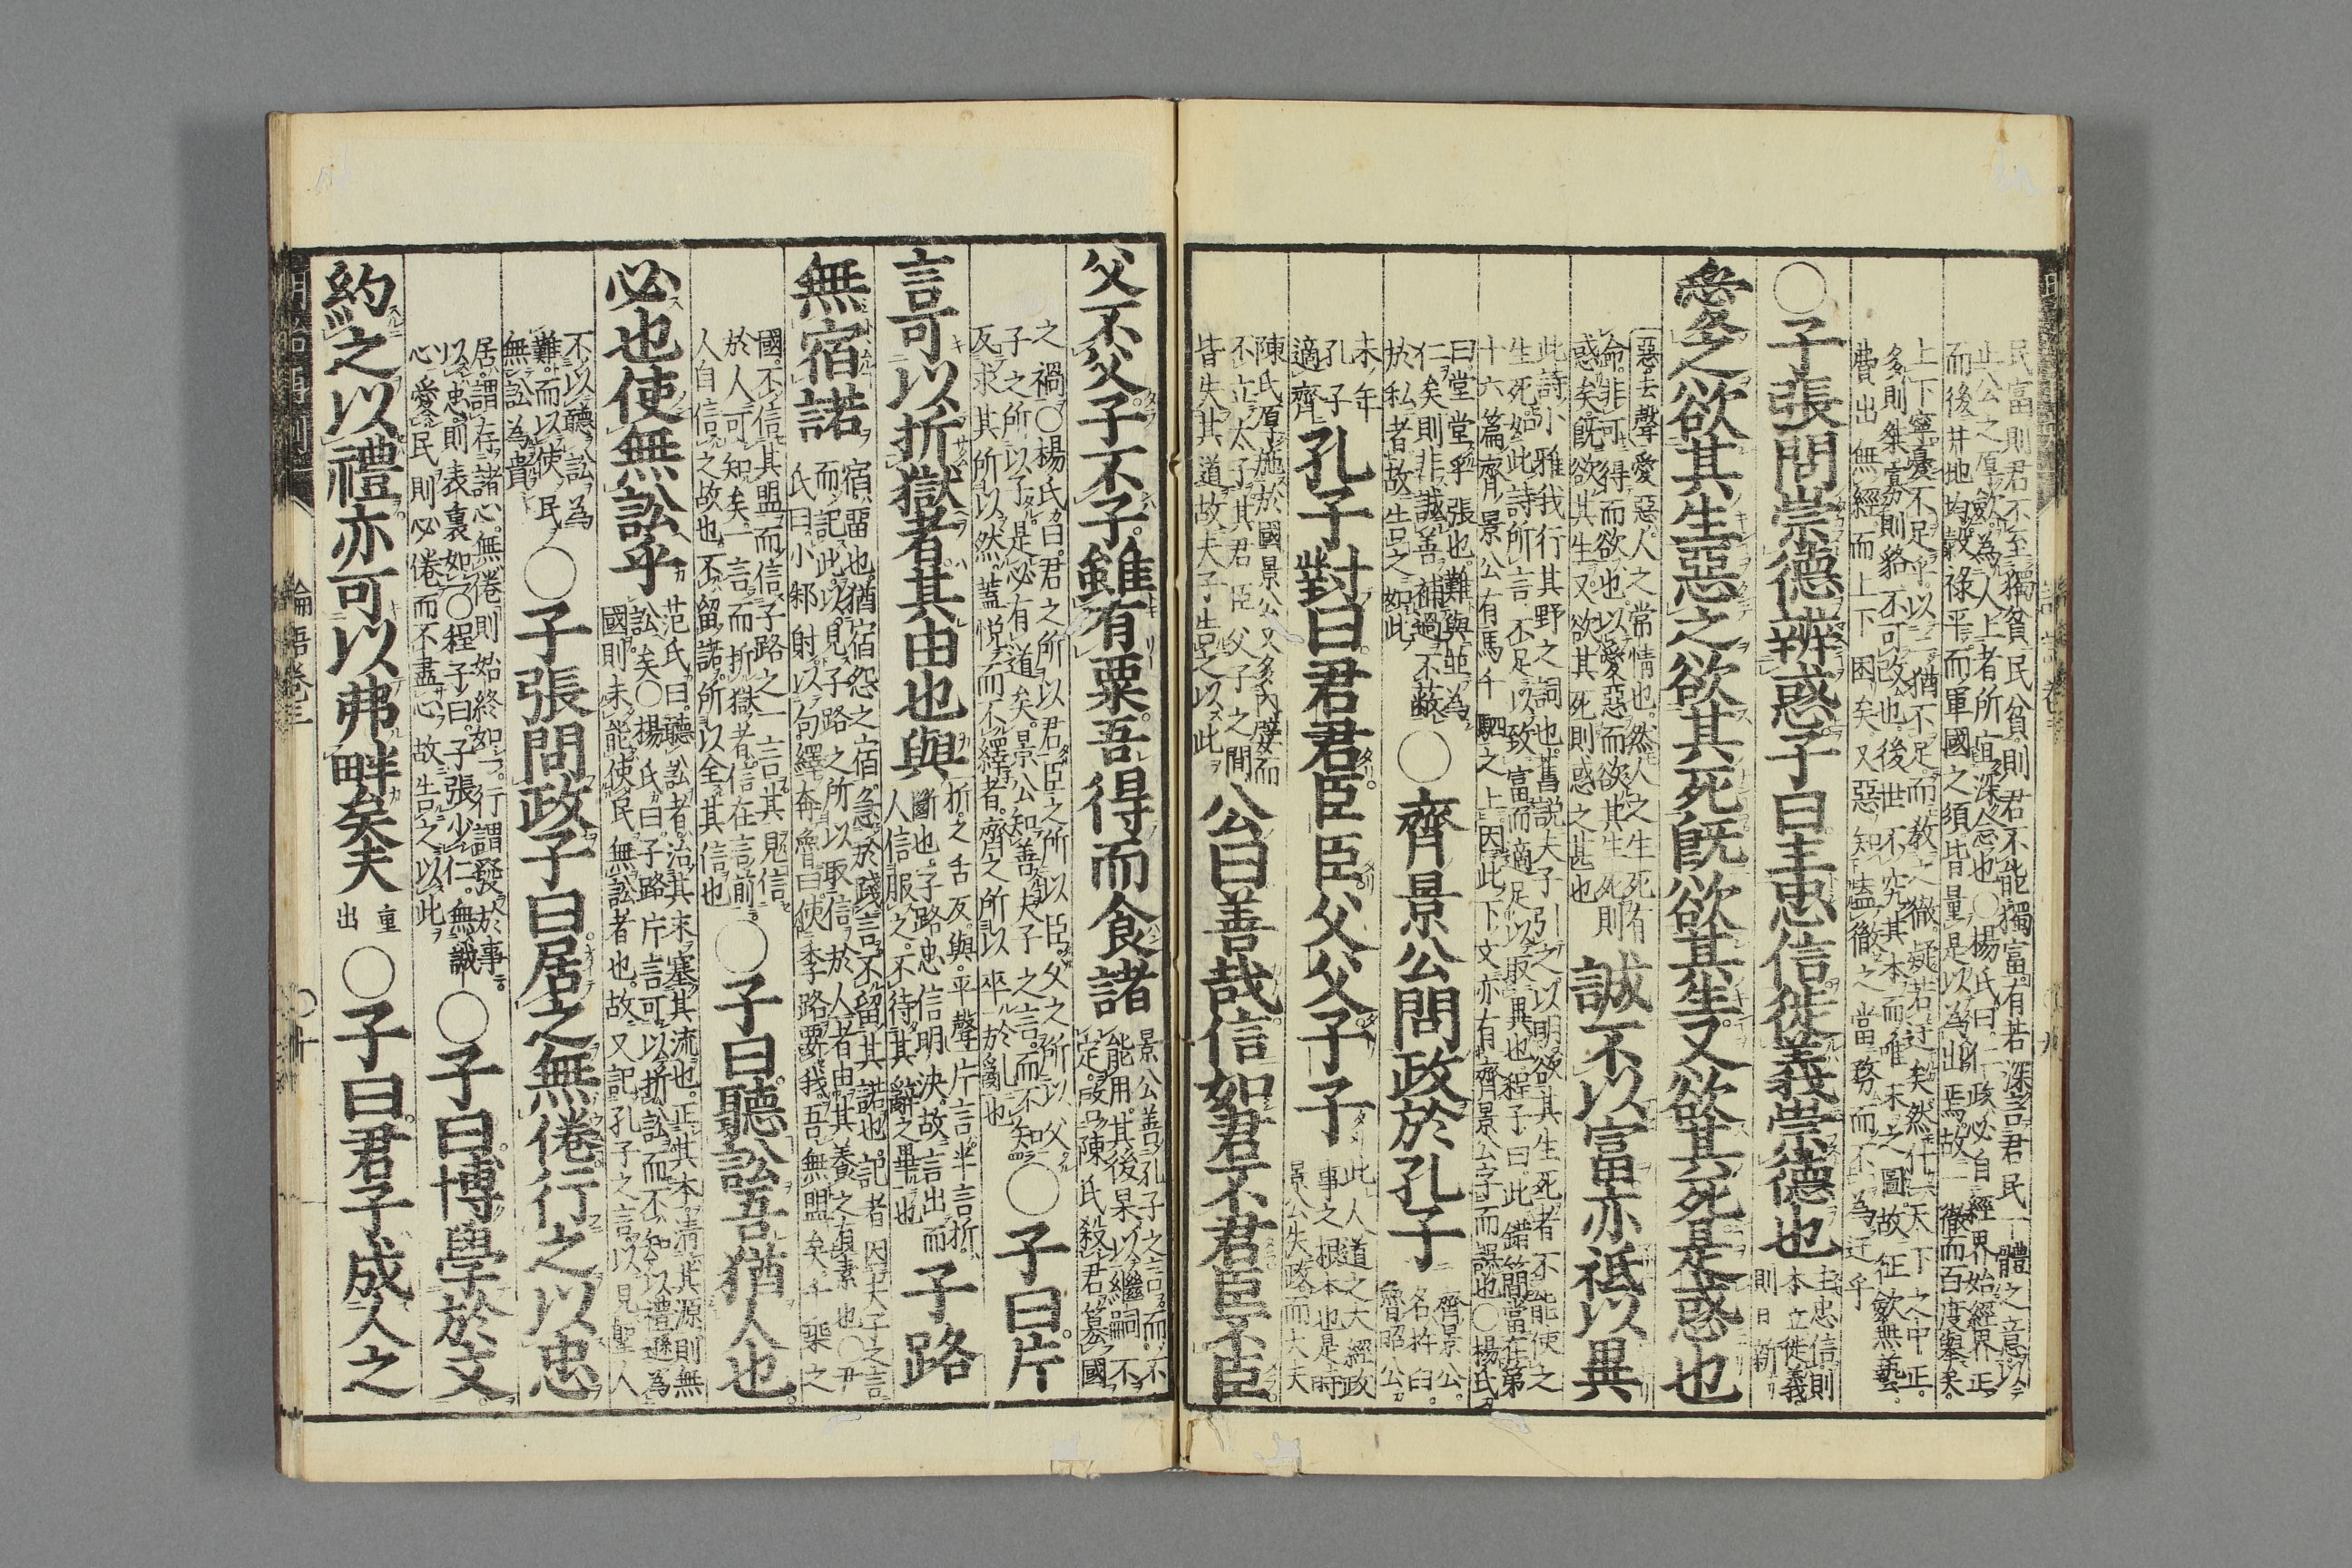 民富則君不至獨貧民貧則君不能獨富有若深言君民一體之意以
止公之厚斂為人上者所宜深念也○楊氏曰仁政必自經界始經界正
而後井地均穀祿平而軍國之須皆量是以為出焉故一徹而百度舉矣
上下寧憂不足乎以二猶不足而教之徹疑若迂矣然什一天下之中正
多則桀寡則貉不可改也後世不究其本而唯末之圖故征斂無藝
費出無經而上下困矣又惡知盍徹之當務而不為迂乎
○子張問崇德辨惑子曰主忠信徙義崇德也
主忠信則
本立徙義
則日新
愛之欲其生惡之欲其死既欲其生又欲其死是惑也
惡去聲愛惡人之常情也然人之生死有
命非可得而欲也以愛惡而欲其生死則
惑矣既欲其生又欲其死則惑之甚也
誠不以富亦祗以異
此詩小雅我行其野之詞也舊説夫子引之以明欲其生死者不能使之
生死如此詩所言不足以致富而適足以取異也程子曰此錯簡當在第
十六篇齊景公有馬千駟之上因此下文亦有齊景公字而誤也○楊氏
曰堂堂乎張也難與並為
仁矣則非誠善補過不蔽
於私者故告之如此
○齊景公問政於孔子
齊景公
名杵臼
魯昭公
末年
孔子
適齊
孔子對曰君君臣臣父父子子
此人道之大經政
事之根本也是時
景公失政而大夫
陳氏厚施於國景公又多內嬖而
不立太子其君臣父子之間
皆失其道故夫子告之以此
公曰善哉信如君不君臣不臣
論語卷三
父不父子不子雖有粟吾得而食諸
景公善孔子之言而不
能用其後果以繼嗣不
定啟陳氏殺君篡國
之禍○楊氏曰君之所以君臣之所以臣父之所以父
子之所以子是必有道矣景公知善夫子之言而不知
反求其所以然蓋悅而不繹者齊之所以卒於亂也
○子曰片
言可以折獄者其由也與
折之舌反與平聲片言半言折
斷也子路忠信明決故言出而
人信服之不待其辭之畢也
子路
無宿諾
宿留也猶宿怨之宿急於踐言不留其諾也記者因夫子之言
而記此以見子路之所以取信於人者由其養之有素也○尹
氏曰小邾射以句繹奔魯曰使季路要我吾無盟矣千乘之
國不信其盟而信子路之一言其見信
於人可知矣一言而折獄者信在言前
人自信之故也不留諾所以全其信也
○子曰聽訟吾猶人也
必也使無訟乎
范氏曰聽訟者治其末塞其流也正其本清其源則無
訟矣○楊氏曰子路片言可以折訟而不知以禮遜為
國則未能使民無訟者也故又記孔子之言以見聖人
不以聽訟為
難而以使民
無訟為貴
○子張問政子曰居之無倦行之以忠
居謂存諸心無倦則始終如一行謂發於事
以忠則表裏如一○程子曰子張少仁無誠
心愛民則必倦而不盡心故告之以此
○子曰博學於文
約之以禮亦可以弗畔矣夫
重
出
○子曰君子成人之
論語卷三
○十